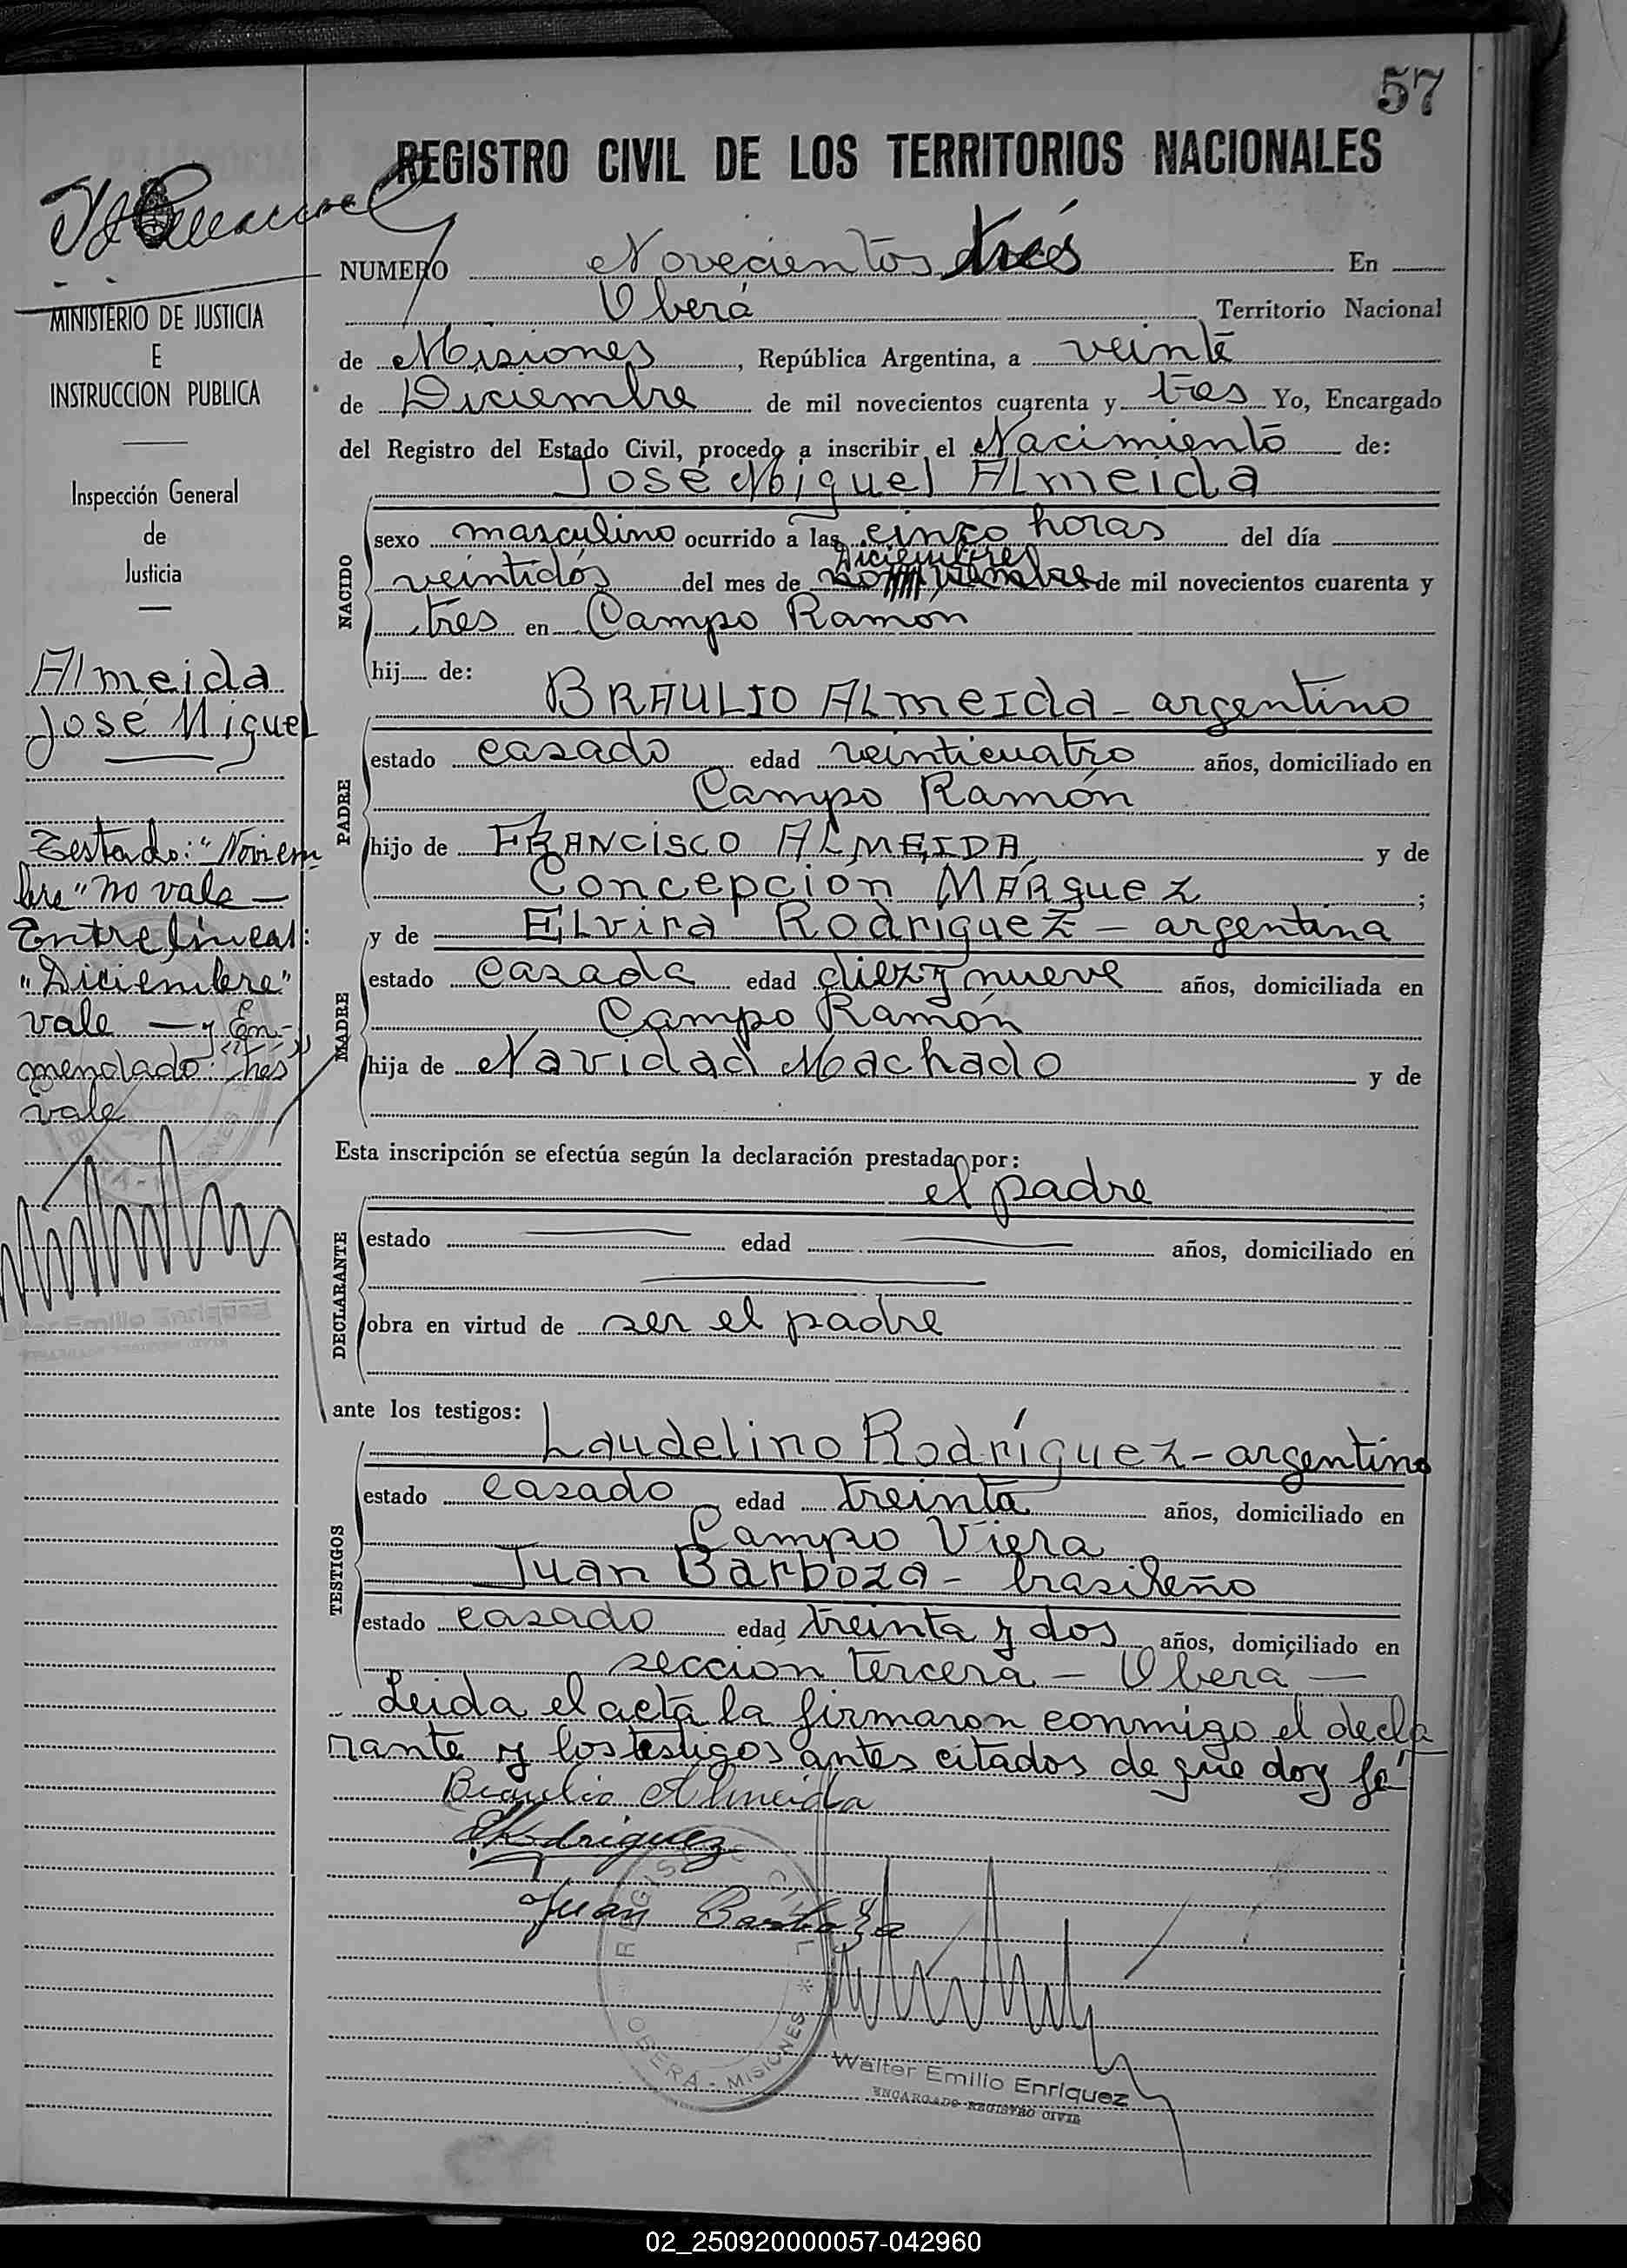 57
REGISTRO CIVIL DE LOS TERRITORIOS NACIONALES
NUMERO Novecientos tres En
Oberá Territorio Nacional
de Misiones, República Argentina, a veinte
de Diciembre de mil novecientos cuarenta y tres Yo, Encargado
del Registro del Estado Civil, procedo a inscribir el Nacimiento de:
José Miguel Almeida
NACIDO
sexo masculino ocurrido a las cinco horas del día
Diciembre
veintidós del mes de de mil novecientos cuarenta y
tres en Campo Ramon
hij de:
BRAULIO ALmeIda - argentino
PADRE
estado casado edad veinticuatro años, domiciliado en
Campo Ramón
hijo de FRANCISCO ALMEIDA y de
Concepcion MÁRquez ;
y de Elvira Rodriguez - argentina
MADRE
estado casada edad diez y nueve años, domiciliada en
Campo Ramón
hija de Navidad Machado y de
Esta inscripción se efectúa según la declaración prestada por:
el padre
DECLARANTE
estado edad años, domiciliado en
obra en virtud de ser el padre
ante los testigos:
Laudelino Rodríguez - argentino
TESTIGOS
estado casado edad treinta años, domiciliado en
Campo Viera
Juan Barboza - brasileño
estado casado edad treinta y dos años, domiciliado en
sección tercera - Oberá -
Leida el acta la firmaron conmigo el decla
rante y los testigos antes citados de que doy fé
Braulio Almeida
Rodriguez
Juan Barboza
REGISTRO CIVIL * OBERA - MISIONES *
Walter Emilio Enriquez
ENCARGADO REGISTRO CIVIL
MINISTERIO DE JUSTICIA
E
INSTRUCCION PUBLICA
Inspección General
de
Justicia
Almeida
José Miguel
Testado: "Noviem
bre" no vale -
Entrelíneas:
"Diciembre"
vale - y En-
mendado: "tres"
vale
02_250920000057-042960